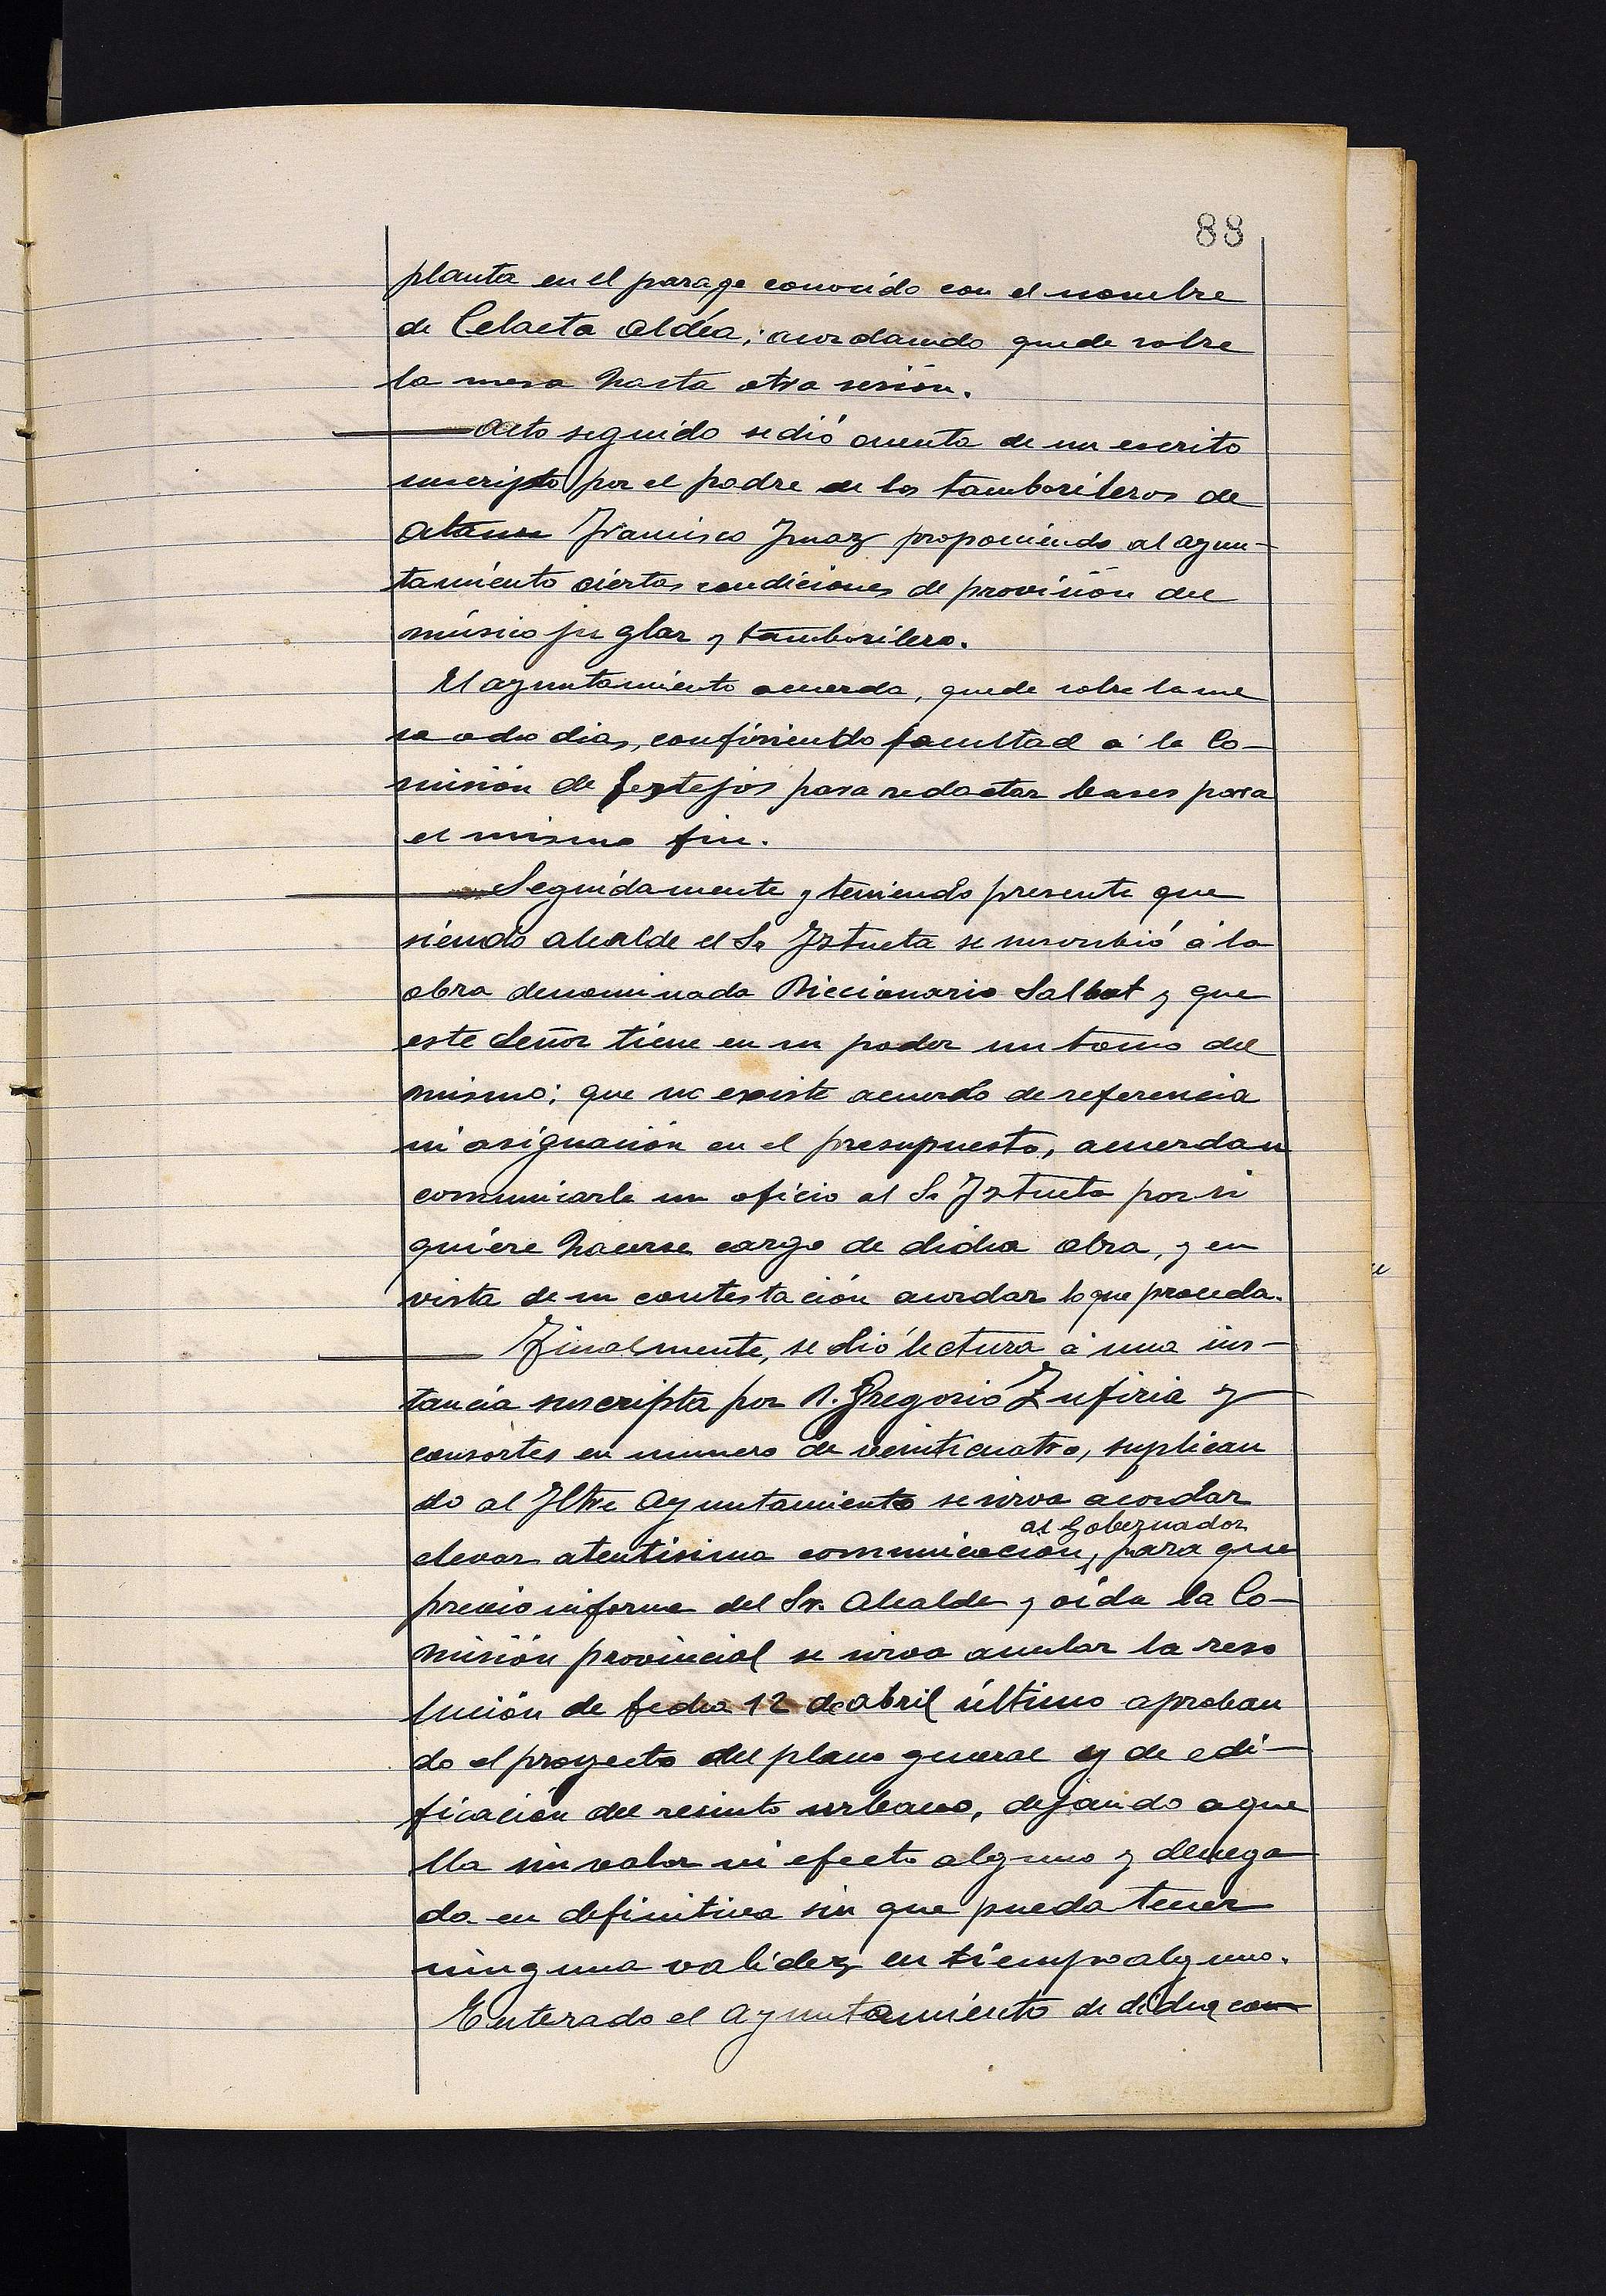 88
planta en el parage conocido con el nombre
de Celaeta aldéa; acordando quede sobre
la mesa hasta otra sesión.
Acto seguido se dió cuenta de un escrito
suscripto por el padre de los tamborileros de
Ataun Francisco Imaz proponiendo al ayun-
tamiento ciertas condiciones de provisión del
músico juglar y tamborilero.
El ayuntamiento acuerda, quede sobre la me
sa ocho dias, confiriendo facultad á la Co-
misión de festejos para redactar bases para
el mismo fin.
Seguidamente y teniendo presente que
siendo alcalde el Sr Iztueta se suscribió á la
obra denominada Diccionario Salbat y que
este Señor tiene en su poder un tomo del
mismo; que no existe acuerdo de referencia
ni asignación en el presupuesto, acuerdan
comunicarle un oficio al Sr Iztueta por si
quiere hacerse cargo de dicha obra, y en
vista de su contestación acordar lo que proceda.
Finalmente, se dió lectura á una ins-
tancia suscripta por D. Gregorio Zufiria y
consortes en numero de veinticuatro, suplican
do al Iltre Ayuntamiento se sirva acordar
al Gobernador
elevar atentisima comunicación, para que
previo informe del Sr. Alcalde y oida la Co-
misión provincial se sirva anular la reso
lución de fecha 12 de abril último aproban
do el proyecto del plano general y de edi-
ficación del recinto urbano, dejando aque
lla sin valor ni efecto alguno y denega
da en definitiva sin que pueda tener
ninguna validez en tiempo alguno.
Enterado el ayuntamiento de dicha com